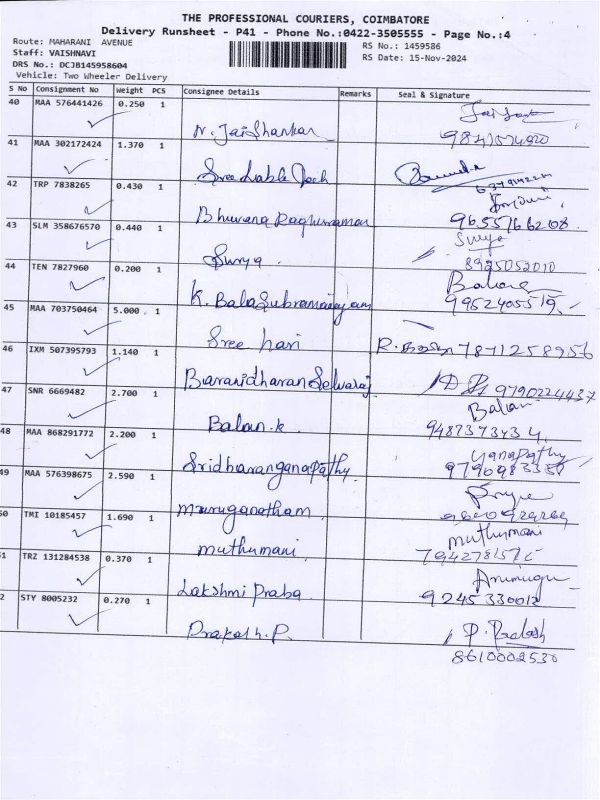 THE PROFESSIONAL COURIERS, COIMBATORE
Delivery Runsheet - P41 - Phone No.:0422-3505555 - Page No.:4
Route: MAHARANI AVENUE
RS No.: 1459586
Staff: VAISHNAVI
RS Date: 15-Nov-2024
DRS No.: DCJB145958604
Vehicle: Two Wheeler Delivery
S No Consignment No Weight PCS Consignee Details Remarks Seal & Signature
40 MAA 576441426 0.250 1
N. JaiShankar
41 MAA 302172424 1.370 1
42 TRP 7838265 0.430 1
Bhuvana Raghuraman 9655166208
43 SLM 358676570 0.440 1
Surya
Surya 8925052010
44 TEN 7827960 0.200 1
K. BalaSubramaniyam 9952405519
45 MAA 703750464 5.000 1
Sree hari 7871258956
46 IXM 507395793 1.140 1
Baranidharan Selvaraj 9790224437
47 SNR 6669482 2.700 1
Balan
Balan.k 9487373434
48 MAA 868291772 2.200 1
Sridharanganapathy
49 MAA 576398675 2.590 1
Muruganatham
50 TMI 10185457 1.690 1
muthumani
muthumani
51 TRZ 131284538 0.370 1
Lakshmi Praba
52 STY 8005232 0.270 1
Prakash.P. P. Prakash
8610002530